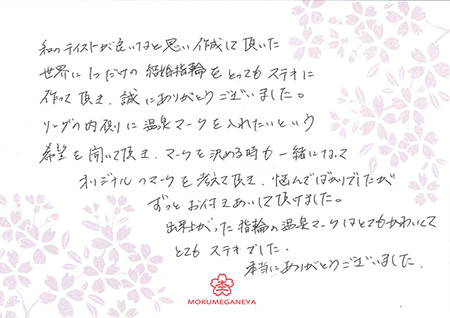 和のテイストが良いなと思い作成して頂いた
世界に1つだけの結婚指輪をとってもステキに
作って頂き、誠にありがとうございました。
リングの内側に温泉マークを入れたいという
希望を聞いて頂き、マークを決める時も一緒になって
オリジナルのマークを考えて頂き、悩んでばかりでしたが
ずっとお付きあいして頂けました。
出来上がった指輪の温泉マークはとてもかわいくて
とてもステキでした。
本当にありがとうございました。
MOKUMEGANEYA